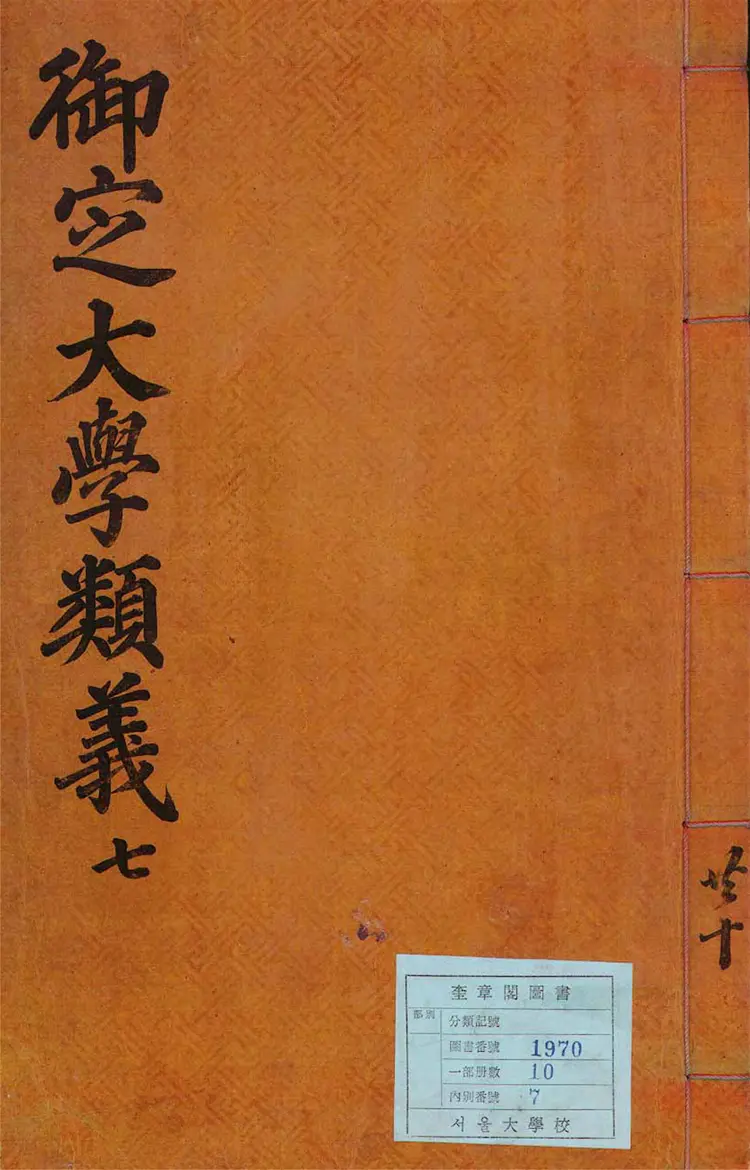 御定大學類義 七
共十
奎章閣圖書
部別
分類記號
圖書番號 1970
一部冊數 10
內別番號 7
서울大學校